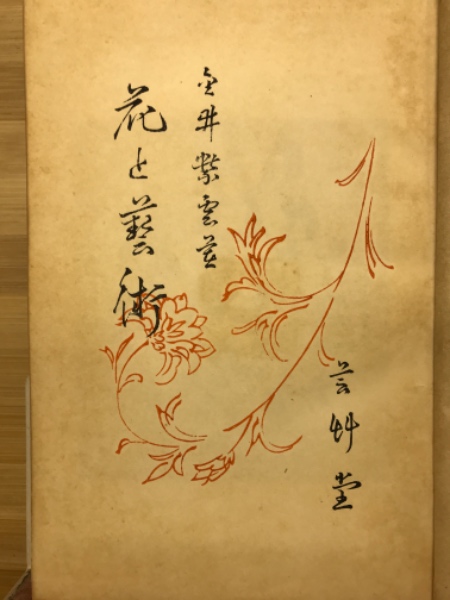 金井紫雲著
花と藝術
芸艸堂